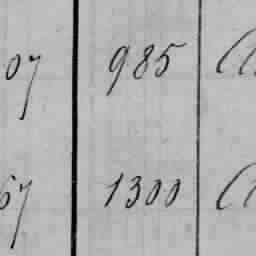 07 985
67 1300